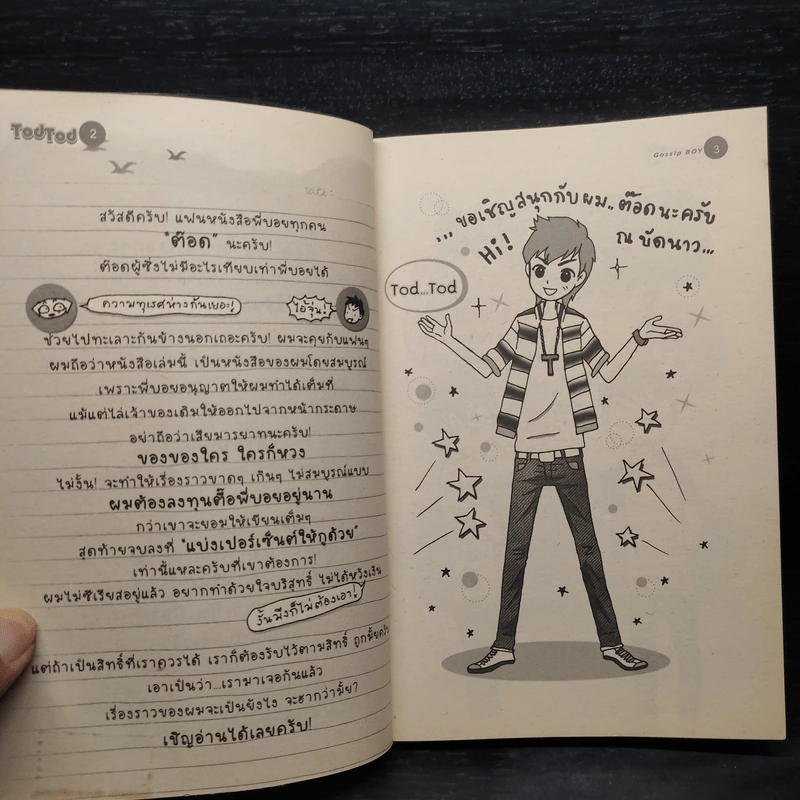 TodTod 2
สวัสดีครับ! แฟนหนังสือพี่บอยทุกคน
"ต๊อด" นะครับ!
ต๊อดผู้ซึ่งไม่มีอะไรเทียบเท่าพี่บอยได้
ความทุเรศห่างกันเยอะ!
ไอ้จุ้น!
ช่วยไปทะเลาะกันข้างนอกเถอะครับ! ผมจะคุยกับแฟนๆ
ผมถือว่าหนังสือเล่มนี้ เป็นหนังสือของผมโดยสมบูรณ์
เพราะพี่บอยอนุญาตให้ผมทำได้เต็มที่
แม้แต่ไล่เจ้าของเดิมให้ออกไปจากหน้ากระดาษ
อย่าถือว่าเสียมารยาทนะครับ!
ของของใคร ใครก็หวง
ไม่งั้น! จะทำให้เรื่องราวขาดๆ เกินๆ ไม่สมบูรณ์แบบ
ผมต้องลงทุนตื๊อพี่บอยอยู่นาน
กว่าเขาจะยอมให้เขียนเต็มๆ
สุดท้ายจบลงที่ "แบ่งเปอร์เซ็นต์ให้กูด้วย"
เท่านี้แหละครับที่เขาต้องการ!
ผมไม่ซีเรียสอยู่แล้ว อยากทำด้วยใจบริสุทธิ์ ไม่ได้หวังเงิน
งั้นมึงก็ไม่ต้องเอา!
แต่ถ้าเป็นสิทธิ์ที่เราควรได้ เราก็ต้องรับไว้ตามสิทธิ์ ถูกมั้ยครับ
เอาเป็นว่า...เรามาเจอกันแล้ว
เรื่องราวของผมจะเป็นยังไง จะฮากว่ามั้ย?
เชิญอ่านได้เลยครับ!
Gossip BOY 3
... ขอเชิญสนุกกับผม.. ต๊อดนะครับ
ณ บัดนาว...
Hi!
Tod...Tod
T